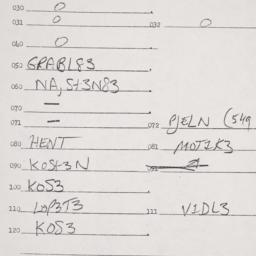 030 0
031 0 032 0
040 0
050 GRABL83
060 NA, St3N83
070 —
071 — 072 PJELN (549
080 HENT 081 MOTIK3
090 KOSt3N 091
100 KOS3
110 LOP3T3 111 VIDL3
120 KOS3